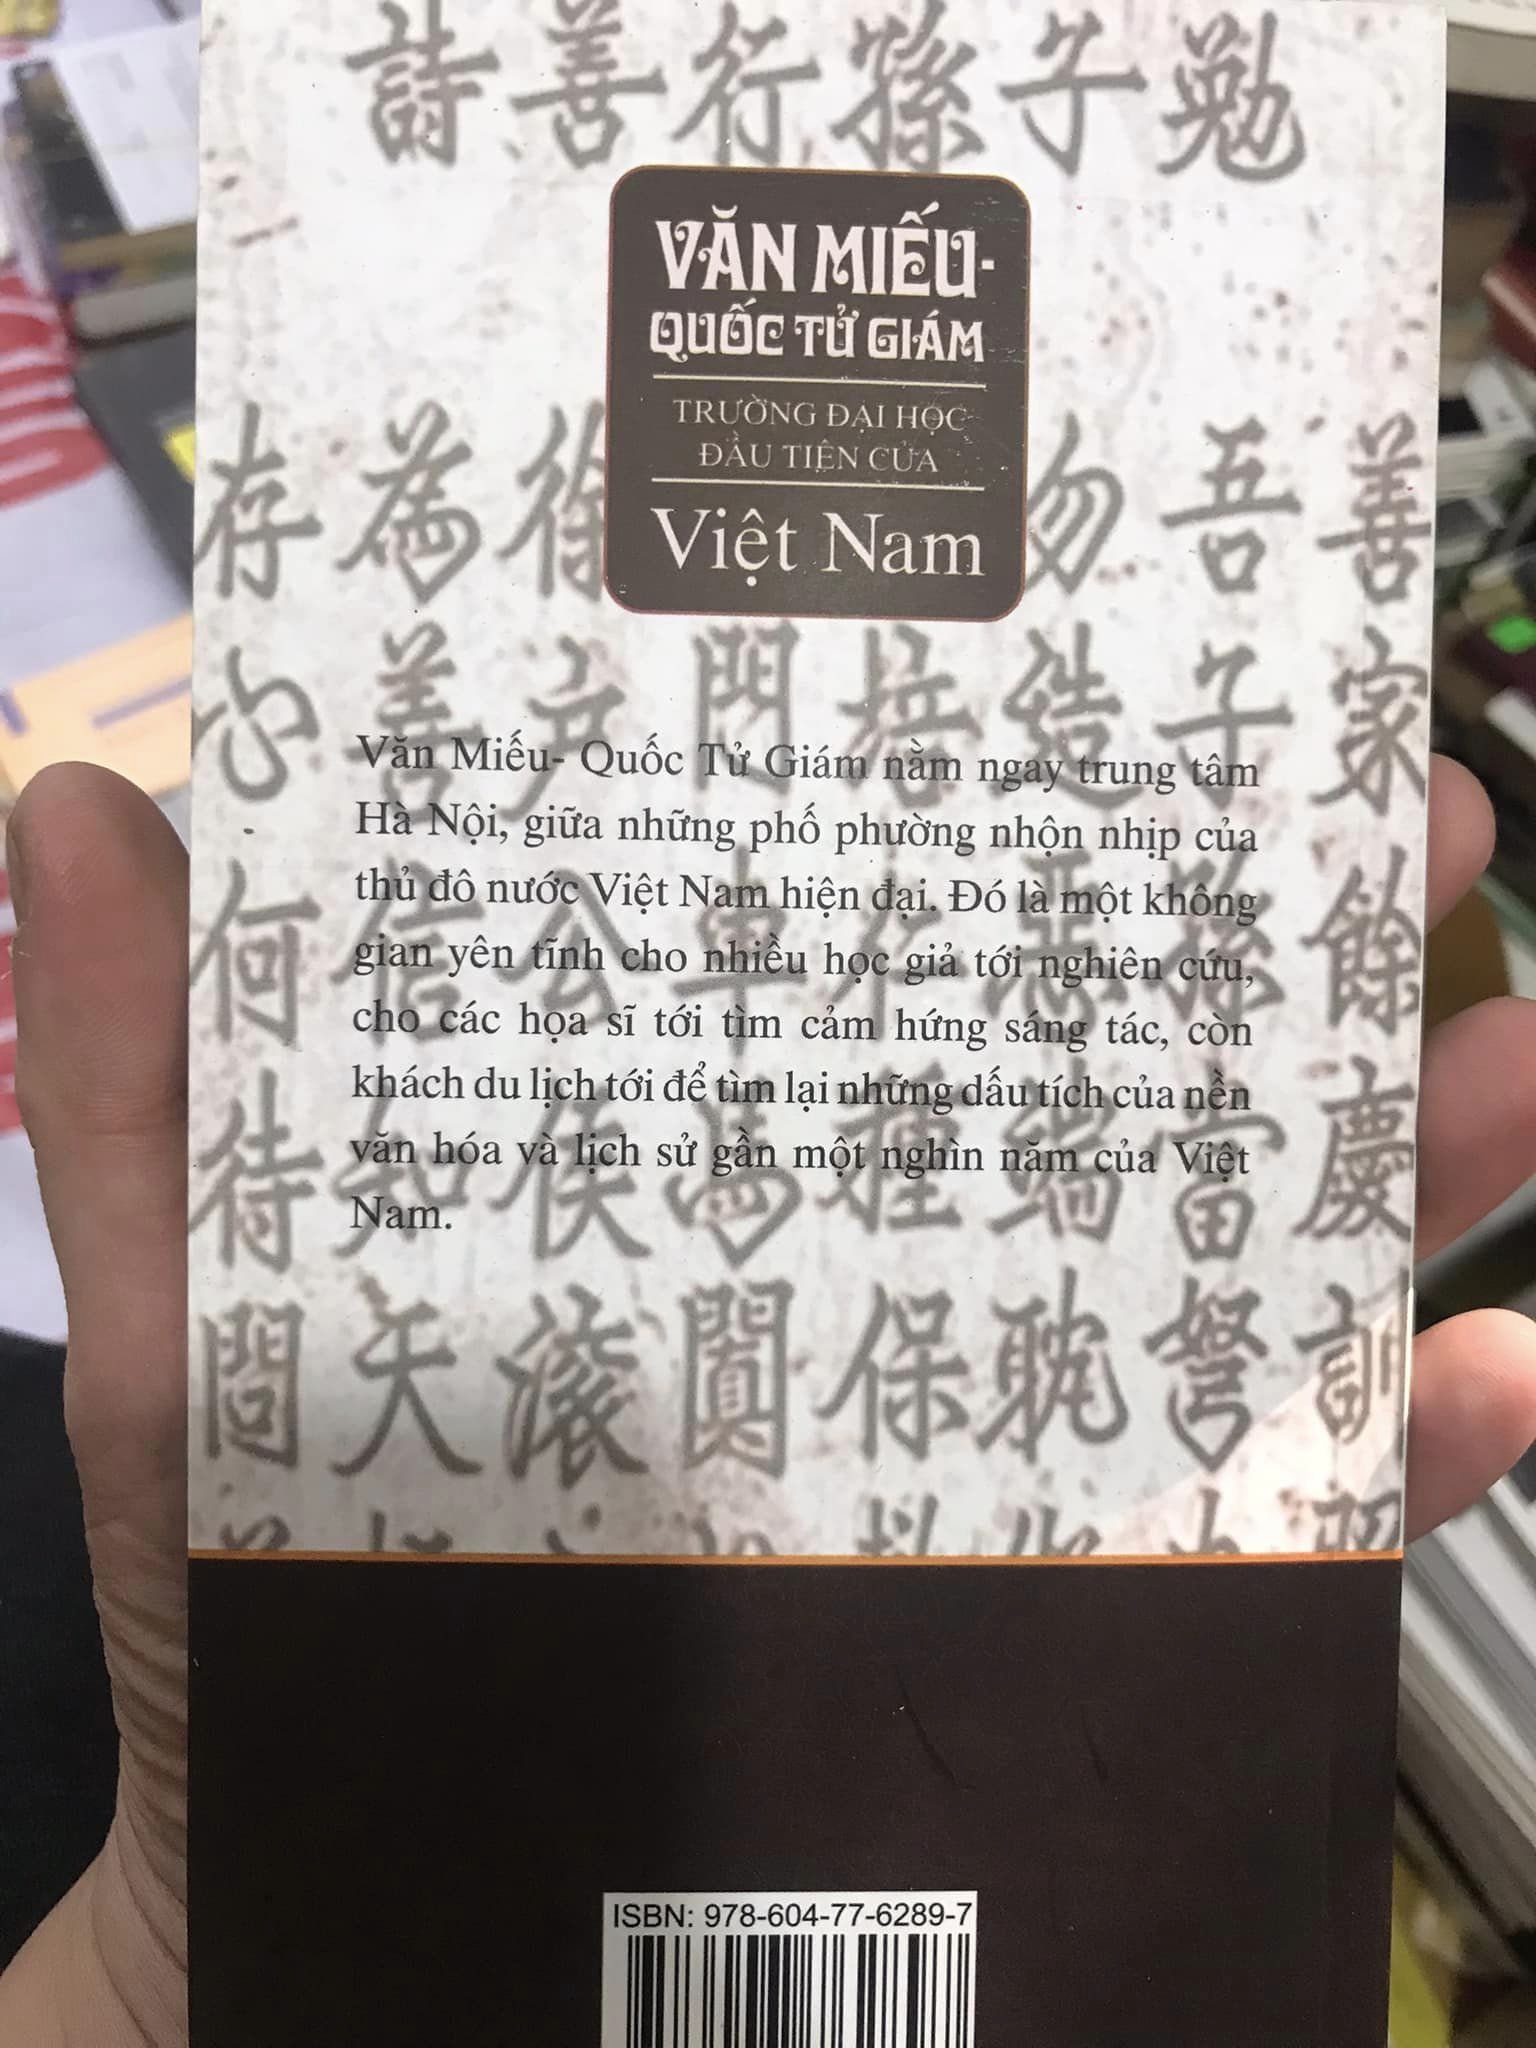 詩善行孫子勉
VĂN MIẾU-
QUỐC TỬ GIÁM
TRƯỜNG ĐẠI HỌC
ĐẦU TIÊN CỦA
Việt Nam
存為徐勿吾善
心善門培造子家
Văn Miếu- Quốc Tử Giám nằm ngay trung tâm
Hà Nội, giữa những phố phường nhộn nhịp của
thủ đô nước Việt Nam hiện đại. Đó là một không
gian yên tĩnh cho nhiều học giả tới nghiên cứu,
cho các họa sĩ tới tìm cảm hứng sáng tác, còn
khách du lịch tới để tìm lại những dấu tích của nền
văn hóa và lịch sử gần một nghìn năm của Việt
Nam.
何信公車行惡孫餘
待知侯種端富慶
問天滚保耽訓
ISBN: 978-604-77-6289-7